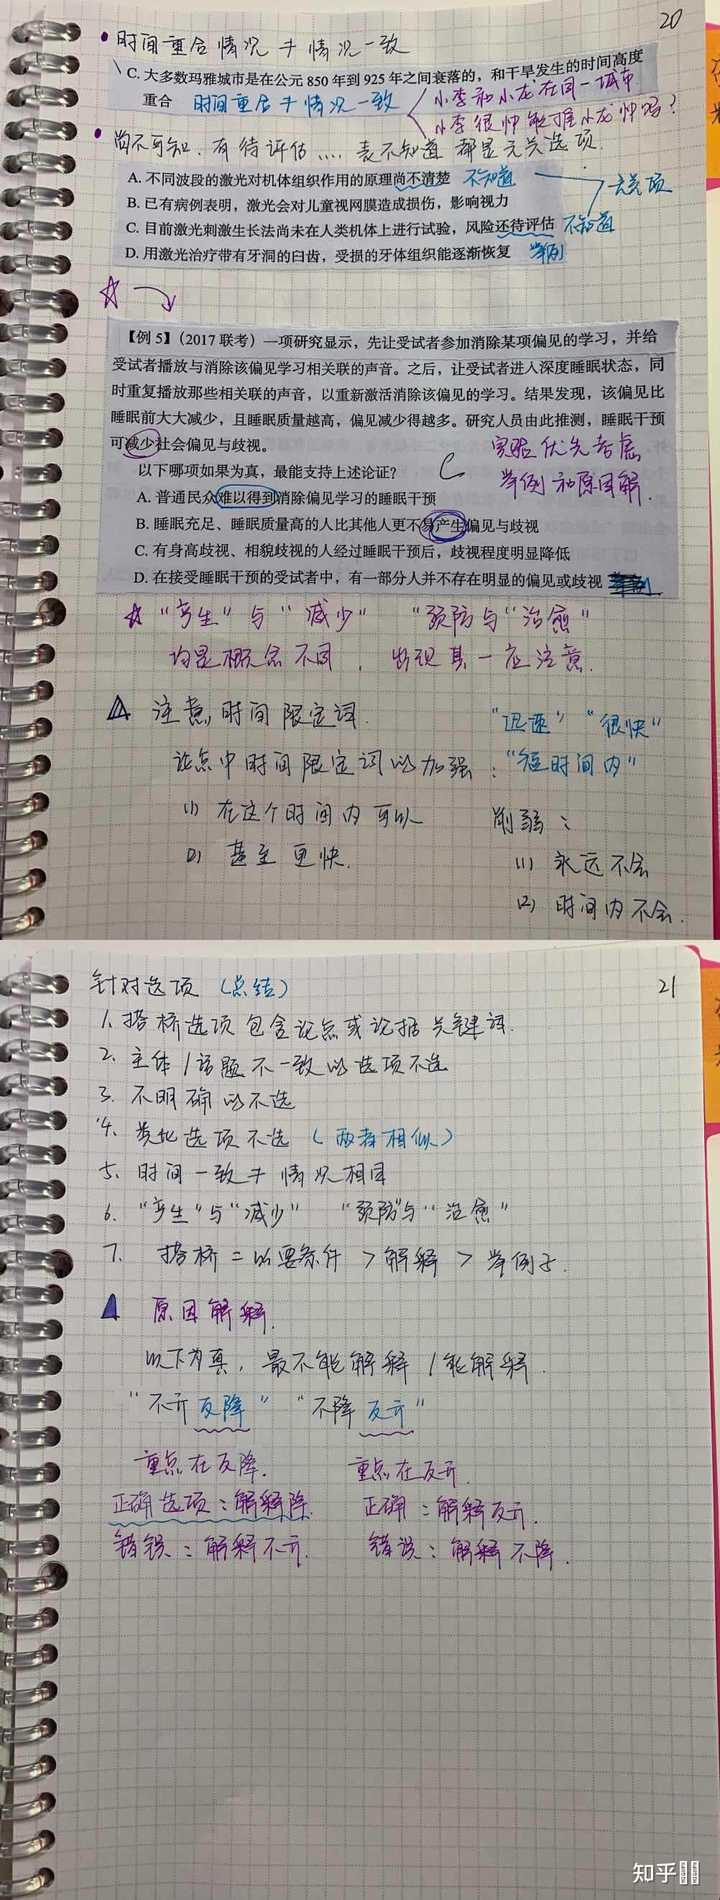 20
• 时间重合情况 ≠ 情况一致
C. 大多数玛雅城市是在公元 850 年到 925 年之间衰落的，和干旱发生的时间高度
重合 时间重合 ≠ 情况一致
小李和小龙在同一城市
小李很帅能推小龙帅吗？
• 尚不可知. 有待评估 .... 表不知道 都是无关选项.
A. 不同波段的激光对机体组织作用的原理尚不清楚 不知道
无关项
B. 已有病例表明，激光会对儿童视网膜造成损伤，影响视力
C. 目前激光刺激生长法尚未在人类机体上进行试验，风险还待评估 不知道
D. 用激光治疗带有牙洞的臼齿，受损的牙体组织能逐渐恢复 举例
【例 5】（2017 联考）一项研究显示，先让受试者参加消除某项偏见的学习，并给
受试者播放与消除该偏见学习相关联的声音。之后，让受试者进入深度睡眠状态，同
时重复播放那些相关联的声音，以重新激活消除该偏见的学习。结果发现，该偏见比
睡眠前大大减少，且睡眠质量越高，偏见减少得越多。研究人员由此推测，睡眠干预
可减少社会偏见与歧视。
实验优先考虑
举例和原因解.
以下哪项如果为真，最能支持上述论证？ C
A. 普通民众难以得到消除偏见学习的睡眠干预
B. 睡眠充足、睡眠质量高的人比其他人更不易产生偏见与歧视
C. 有身高歧视、相貌歧视的人经过睡眠干预后，歧视程度明显降低
D. 在接受睡眠干预的受试者中，有一部分人并不存在明显的偏见或歧视
☆ "产生" 与 "减少" "预防与"治愈"
均是概念不同，出现其一应注意.
注意时间限定词. "迅速" "很快"
论点中时间限定词以加强： "短时间内"
(1) 在这个时间内可以
(2) 甚至更快.
削弱：
(1) 永远不会
(2) 时间内不会.
21
针对选项（总结）
1. 搭桥选项包含论点或论据关键词.
2. 主体/话题不一致以选项不选
3. 不明确以不选
4. 类比选项不选（两者相似）
5. 时间一致 ≠ 情况相同
6. "产生"与"减少" "预防"与"治愈"
7. 搭桥 = 必要条件 > 解释 > 举例子.
原因解释.
以下为真，最不能解释/能解释.
"不升反降" "不降反升"
重点在反降. 重点在反升.
正确选项：解释降. 正确：解释反升.
错误：解释不升. 错误：解释不降.
知乎